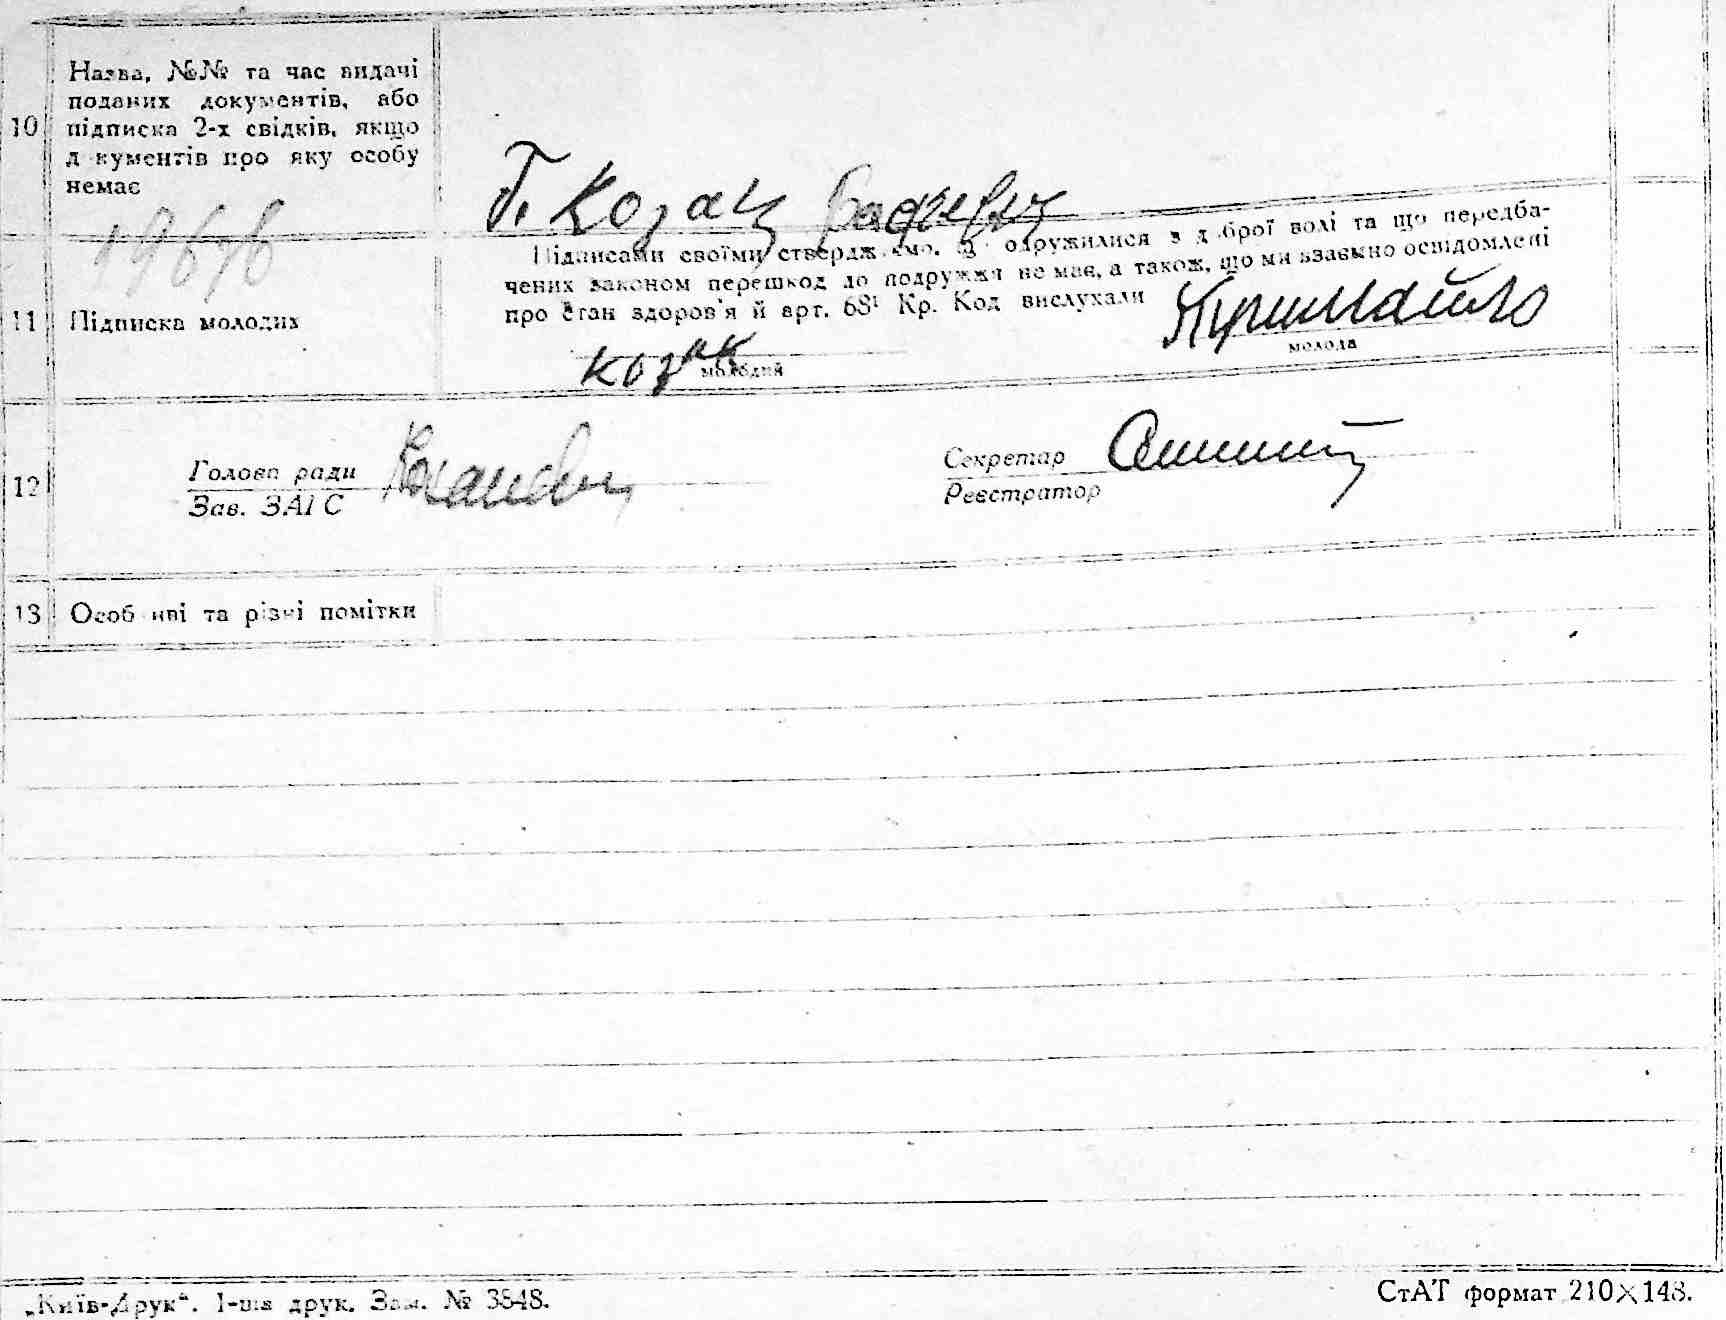 10
Назва, №№ та час видачі
поданих документів, або
підписка 2-х свідків, якщо
д кументів про яку особу
немає
Підписами своїми стверджуємо, що одружилися з д брої волі та що передба-
чених законом перешкод до подружжя не має, а також, що ми взаємно освідомлені
про стан здоров'я й арт. 68¹ Кр. Код вислухали
11
Підписка молодих
Козак
молодий
молода
12
Голова ради
Зав. ЗАГС
Секретар
Реєстратор
13
Особ иві та різні помітки
„Київ-Друк“. 1-ша друк. Зам. № 3848.
СтАТ формат 210×148.